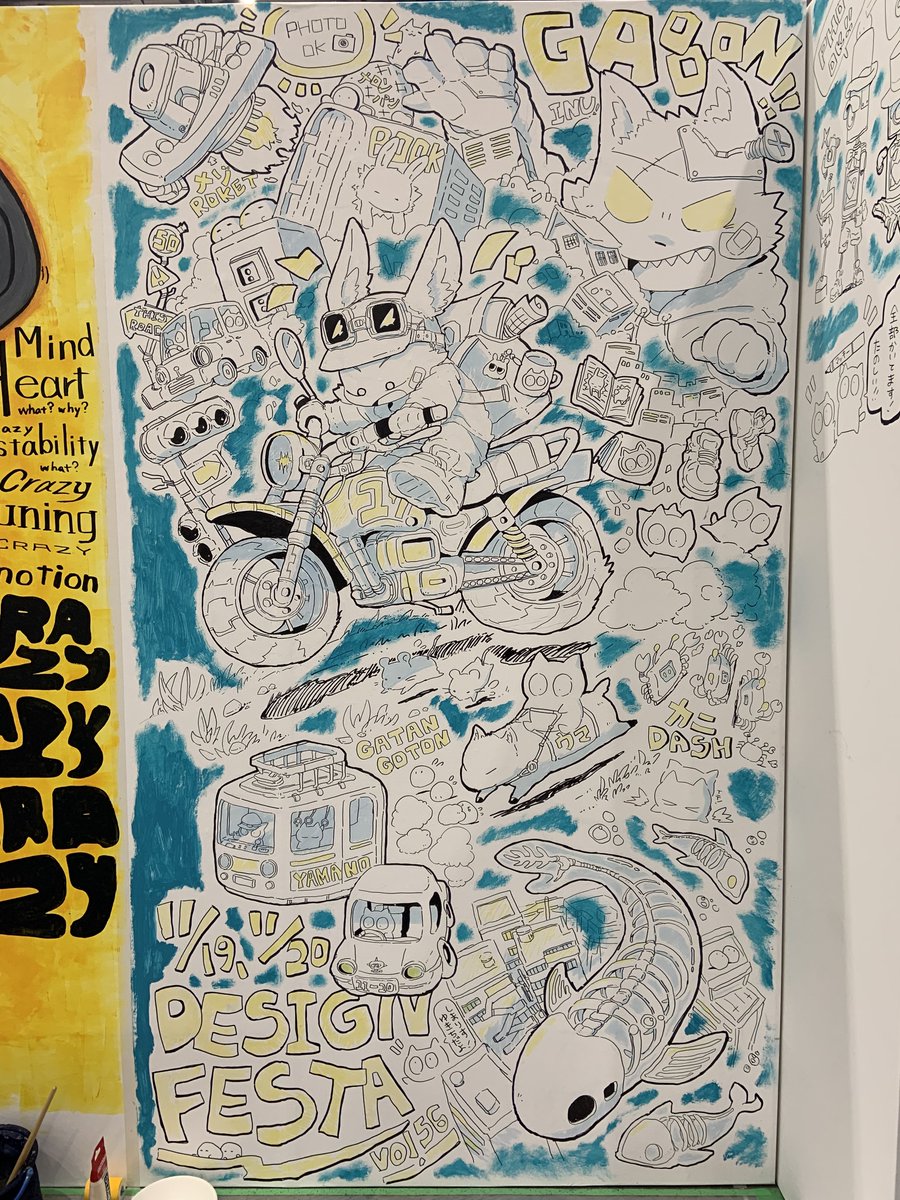 PHOTO
OK
GABBON!!
INU
メロン
パン
メリ
ROKET
50
THIS
ROAD
1
ウマ
カニ
DASH
GATAN
GOTON
YAMANO
11/19, 11/20
22-20
DESIGN
FESTA
vol.56
Mind
Heart
what? why?
azy
stability
what?
Crazy
uning
CRAZY
notion
RA
ZY
RA
ZY
全部かいてます
たのしい!